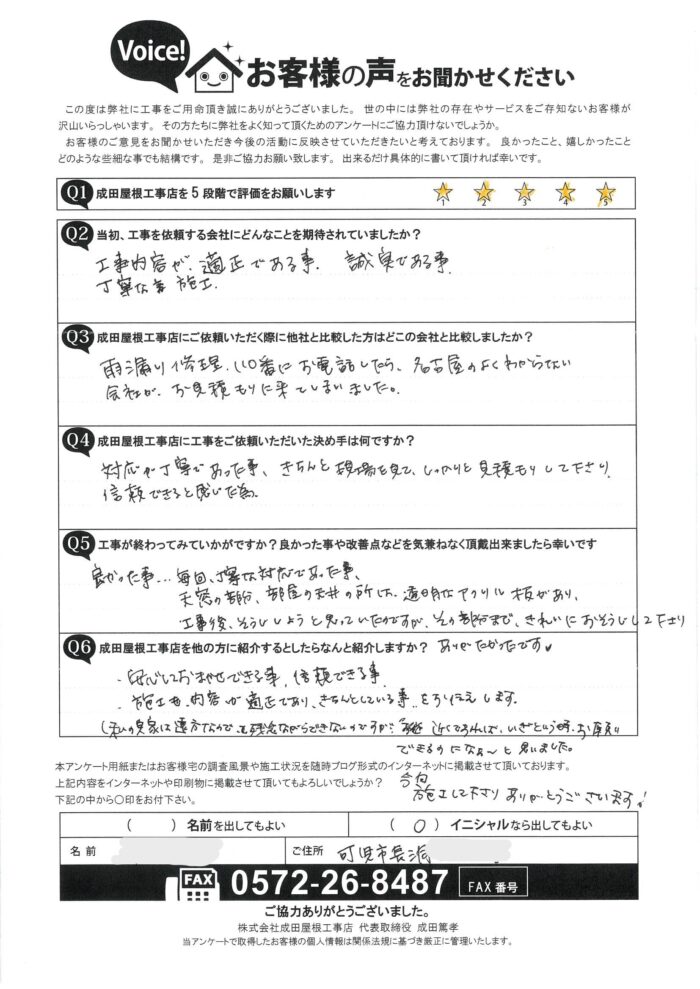 Voice!
お客様の声をお聞かせください
この度は弊社に工事をご用命頂き誠にありがとうございました。 世の中には弊社の存在やサービスをご存知ないお客様が
沢山いらっしゃいます。 その方たちに弊社をよく知って頂くためのアンケートにご協力頂けないでしょうか。
お客様のご意見をお聞かせいただき今後の活動に反映させていただきたいと考えております。 良かったこと、嬉しかったこと
どのような些細な事でも結構です。 是非ご協力お願い致します。 出来るだけ具体的に書いて頂ければ幸いです。
Q1 成田屋根工事店を5段階で評価をお願いします
1 2 3 4 5
Q2 当初、工事を依頼する会社にどんなことを期待されていましたか?
工事内容が、適正である事、 誠実である事、
丁寧な 施工。
Q3 成田屋根工事店にご依頼いただく際に他社と比較した方はどこの会社と比較しましたか?
雨漏り修理、110番にお電話したら、名古屋のよくわからない
会社が、お見積もりに来てしまいました。
Q4 成田屋根工事店に工事をご依頼いただいた決め手は何ですか?
対応が丁寧であった事、きちんと現場を見て、しっかりと見積もりして下さり、
信頼できると感じた為。
Q5 工事が終わってみていかがですか?良かった事や改善点などを気兼ねなく頂戴出来ましたら幸いです
良かった事…毎回、丁寧な対応であった事、
天窓の部分、部屋の天井の所に、透明なアクリル板があり、
工事後、そうじしようと思っていたのですが、その部分まで、きれいにおそうじして下さり
Q6 成田屋根工事店を他の方に紹介するとしたらなんと紹介しますか? ありがたかったです
・安心しておまかせできる事、信頼できる事、
・施工も、内容が適正であり、きちんとしている事、をお伝えします。
(私の実家は遠方なので、残念ながらできないのですが、 近くであれば、いざという時、お願い
できるのになぁ〜と思いました。
本アンケート用紙またはお客様宅の調査風景や施工状況を随時ブログ形式のインターネットに掲載させて頂いております。
上記内容をインターネットや印刷物に掲載させて頂いてもよろしいでしょうか?
下記の中から○印をお付下さい。
今回
施工して下さりありがとうございます!
( ) 名前を出してもよい ( ○ ) イニシャルなら出してもよい
名 前 ご住所 可児市長派
FAX 0572-26-8487 FAX 番号
ご協力ありがとうございました。
株式会社成田屋根工事店 代表取締役 成田篤孝
当アンケートで取得したお客様の個人情報は関係法規に基づき厳正に管理いたします。